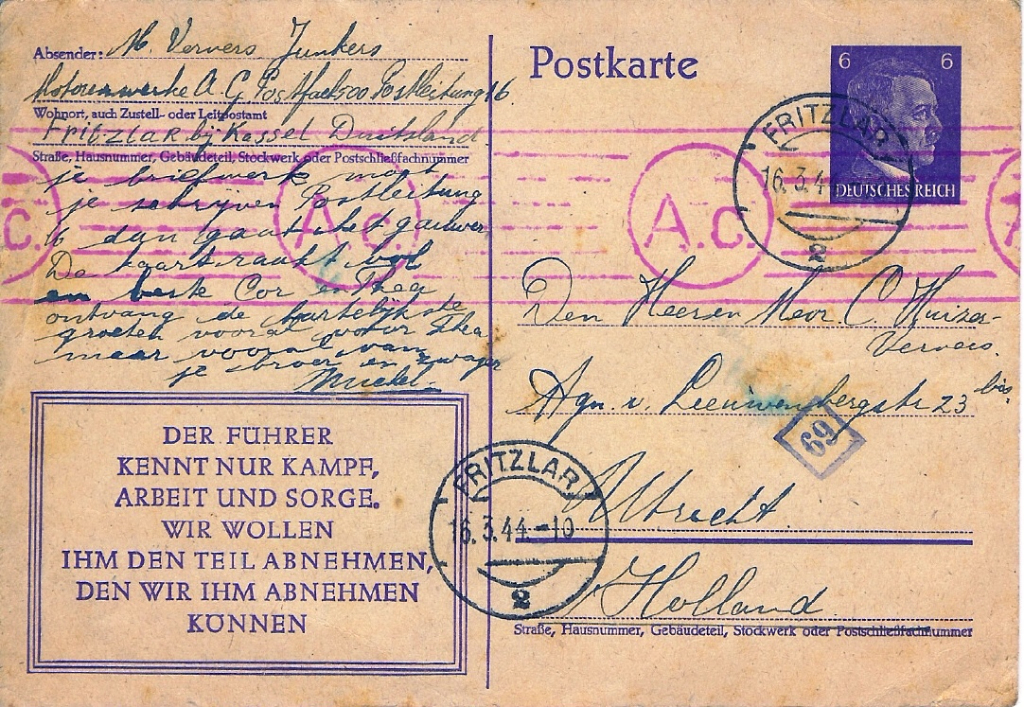 Absender: M. Ververs Junkers
Motorenwerke A. G. Postfach 500 Postleitung 16
Wohnort, auch Zustell- oder Leitpostamt
Fritzlar bij Kassel Duitsland
Straße, Hausnummer, Gebäudeteil, Stockwerk oder Postschließfachnummer
je briefwerk moet
je schrijven Postleitung
16 dan gaat het gauwer
De kaart raakt vol
en beste Cor en Thea
ontvang de hartelijkste
groeten vooral voor Thea
maar vooral van
je broer en zwager
Michel.
DER FÜHRER
KENNT NUR KAMPF,
ARBEIT UND SORGE.
WIR WOLLEN
IHM DEN TEIL ABNEHMEN,
DEN WIR IHM ABNEHMEN
KÖNNEN
Postkarte
6 6
DEUTSCHES REICH
FRITZLAR
16.3.4
2
A.c.
A.c.
Den Heer en Mevr. C. Huizer-
Ververs.
Agn. v. Leeuwenbergstr 23 bis.
69
Utrecht.
Holland
Straße, Hausnummer, Gebäudeteil, Stockwerk oder Postschließfachnummer
FRITZLAR
16.3.44.-10
2